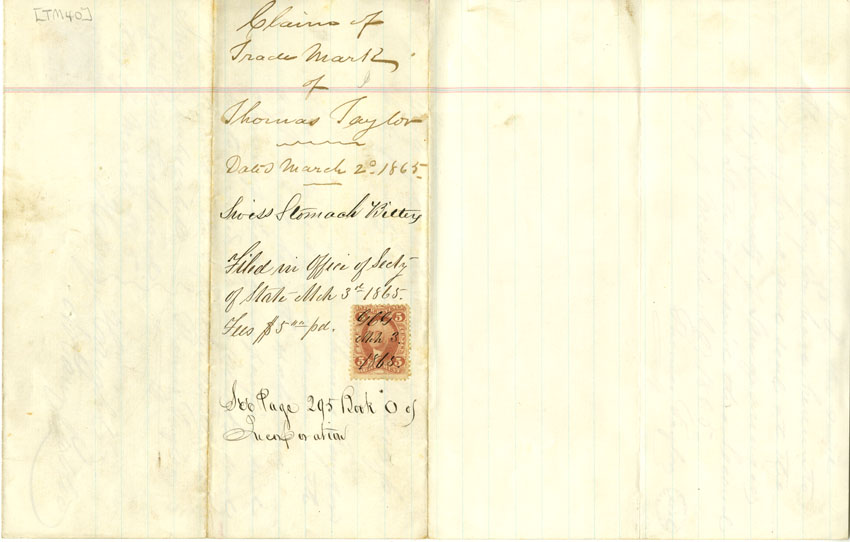 [TM40]
Claims of
Trade Mark
of
Thomas Taylor
Dated March 2d 1865
Swiss Stomach Bitters
Filed in Office of Secty
of State Mch 3rd 1865.
Fees $5 pd.
5 5
Mch 3.
1865.
See Page 295 Book "O of
Incorporation